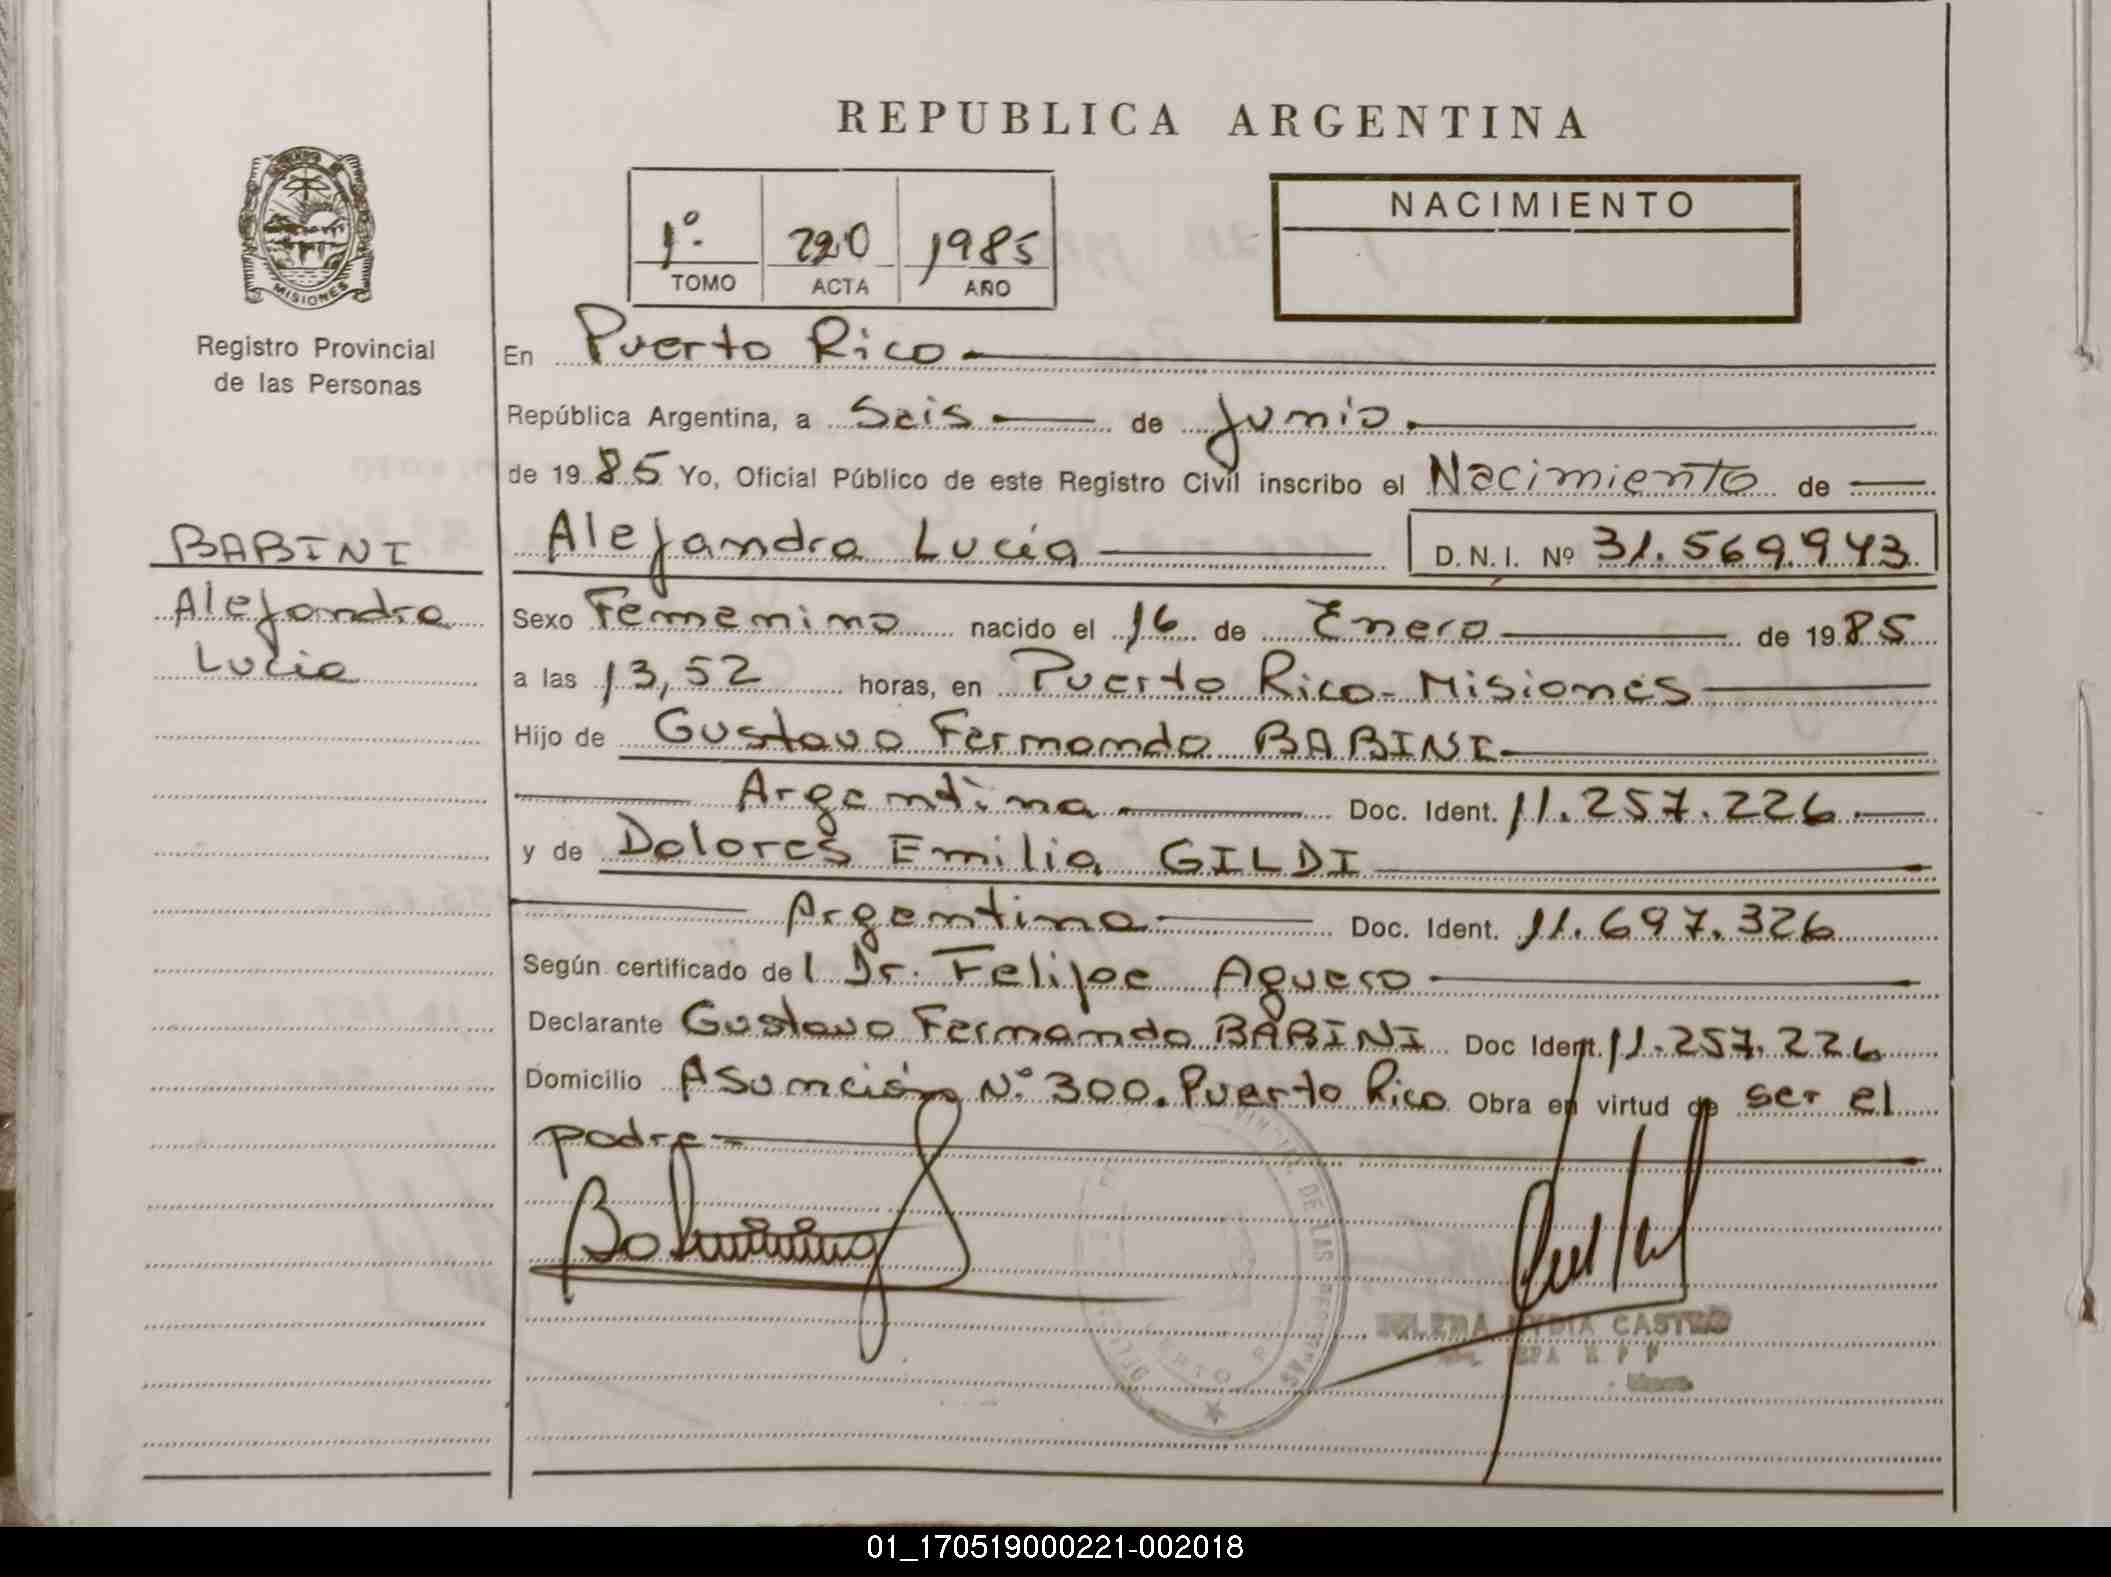 REPUBLICA ARGENTINA
1º 220 1985
TOMO ACTA AÑO
NACIMIENTO
MISIONES
Registro Provincial
de las Personas
BABINI
Alejandra
Lucia
En Puerto Rico
República Argentina, a Seis de Junio
de 1985 Yo, Oficial Público de este Registro Civil inscribo el Nacimiento de
Alejandra Lucía D.N.I. Nº 31.569.943
Sexo Femenino nacido el 16 de Enero de 1985
a las 13,52 horas, en Puerto Rico - Misiones
Hijo de Gustavo Fernando BABINI
Argentina Doc. Ident. 11.257.226
y de Dolores Emilia GILDI
Argentina Doc. Ident. 11.697.326
Según certificado del Dr. Felipe Aguero
Declarante Gustavo Fernando BABINI Doc Ident. 11.257.226
Domicilio Asunción Nº 300. Puerto Rico Obra en virtud de ser el
padre
DE LAS
LYDIA CASTRO
01_170519000221-002018